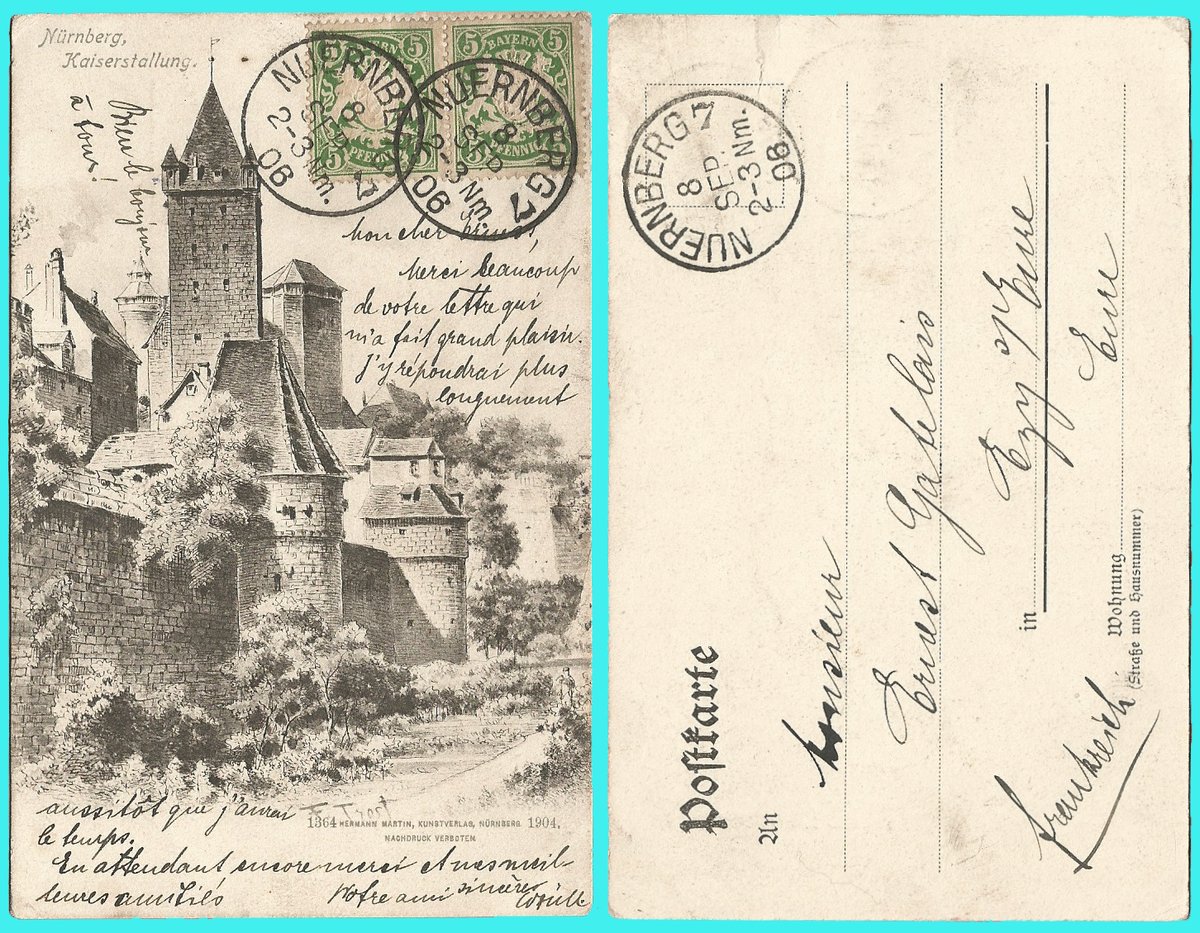 Nürnberg,
Kaiserstallung.
Bien le bonjour
à tous!
BAYERN
5 5
PFENNIG
BAYERN
5 5
PFENNIG
NUERNBERG 7
8
SEP.
2-3 Nm.
06
NUERNBERG 7
8
SEP.
2-3 Nm.
06
Mon cher Ernest,
Merci beaucoup
de votre lettre qui
m'a fait grand plaisir.
J'y répondrai plus
longuement
aussitôt que j'aurai
le temps.
En attendant encore merci et mes meil-
leures amitiés
Votre ami sincère
1364 HERMANN MARTIN, KUNSTVERLAG, NÜRNBERG 1904.
NACHDRUCK VERBOTEN
NUERNBERG 7
8
SEP.
2-3 Nm.
06
Postkarte
An
Monsieur
Ernest Gatelais
in Ezy s/ Eure
Eure
Wohnung
(Straße und Hausnummer)
Frankreich